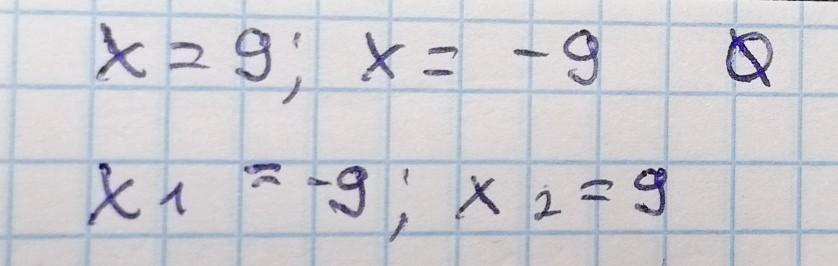 x = 9; x = -9 Ø
x₁ = -9; x₂ = 9